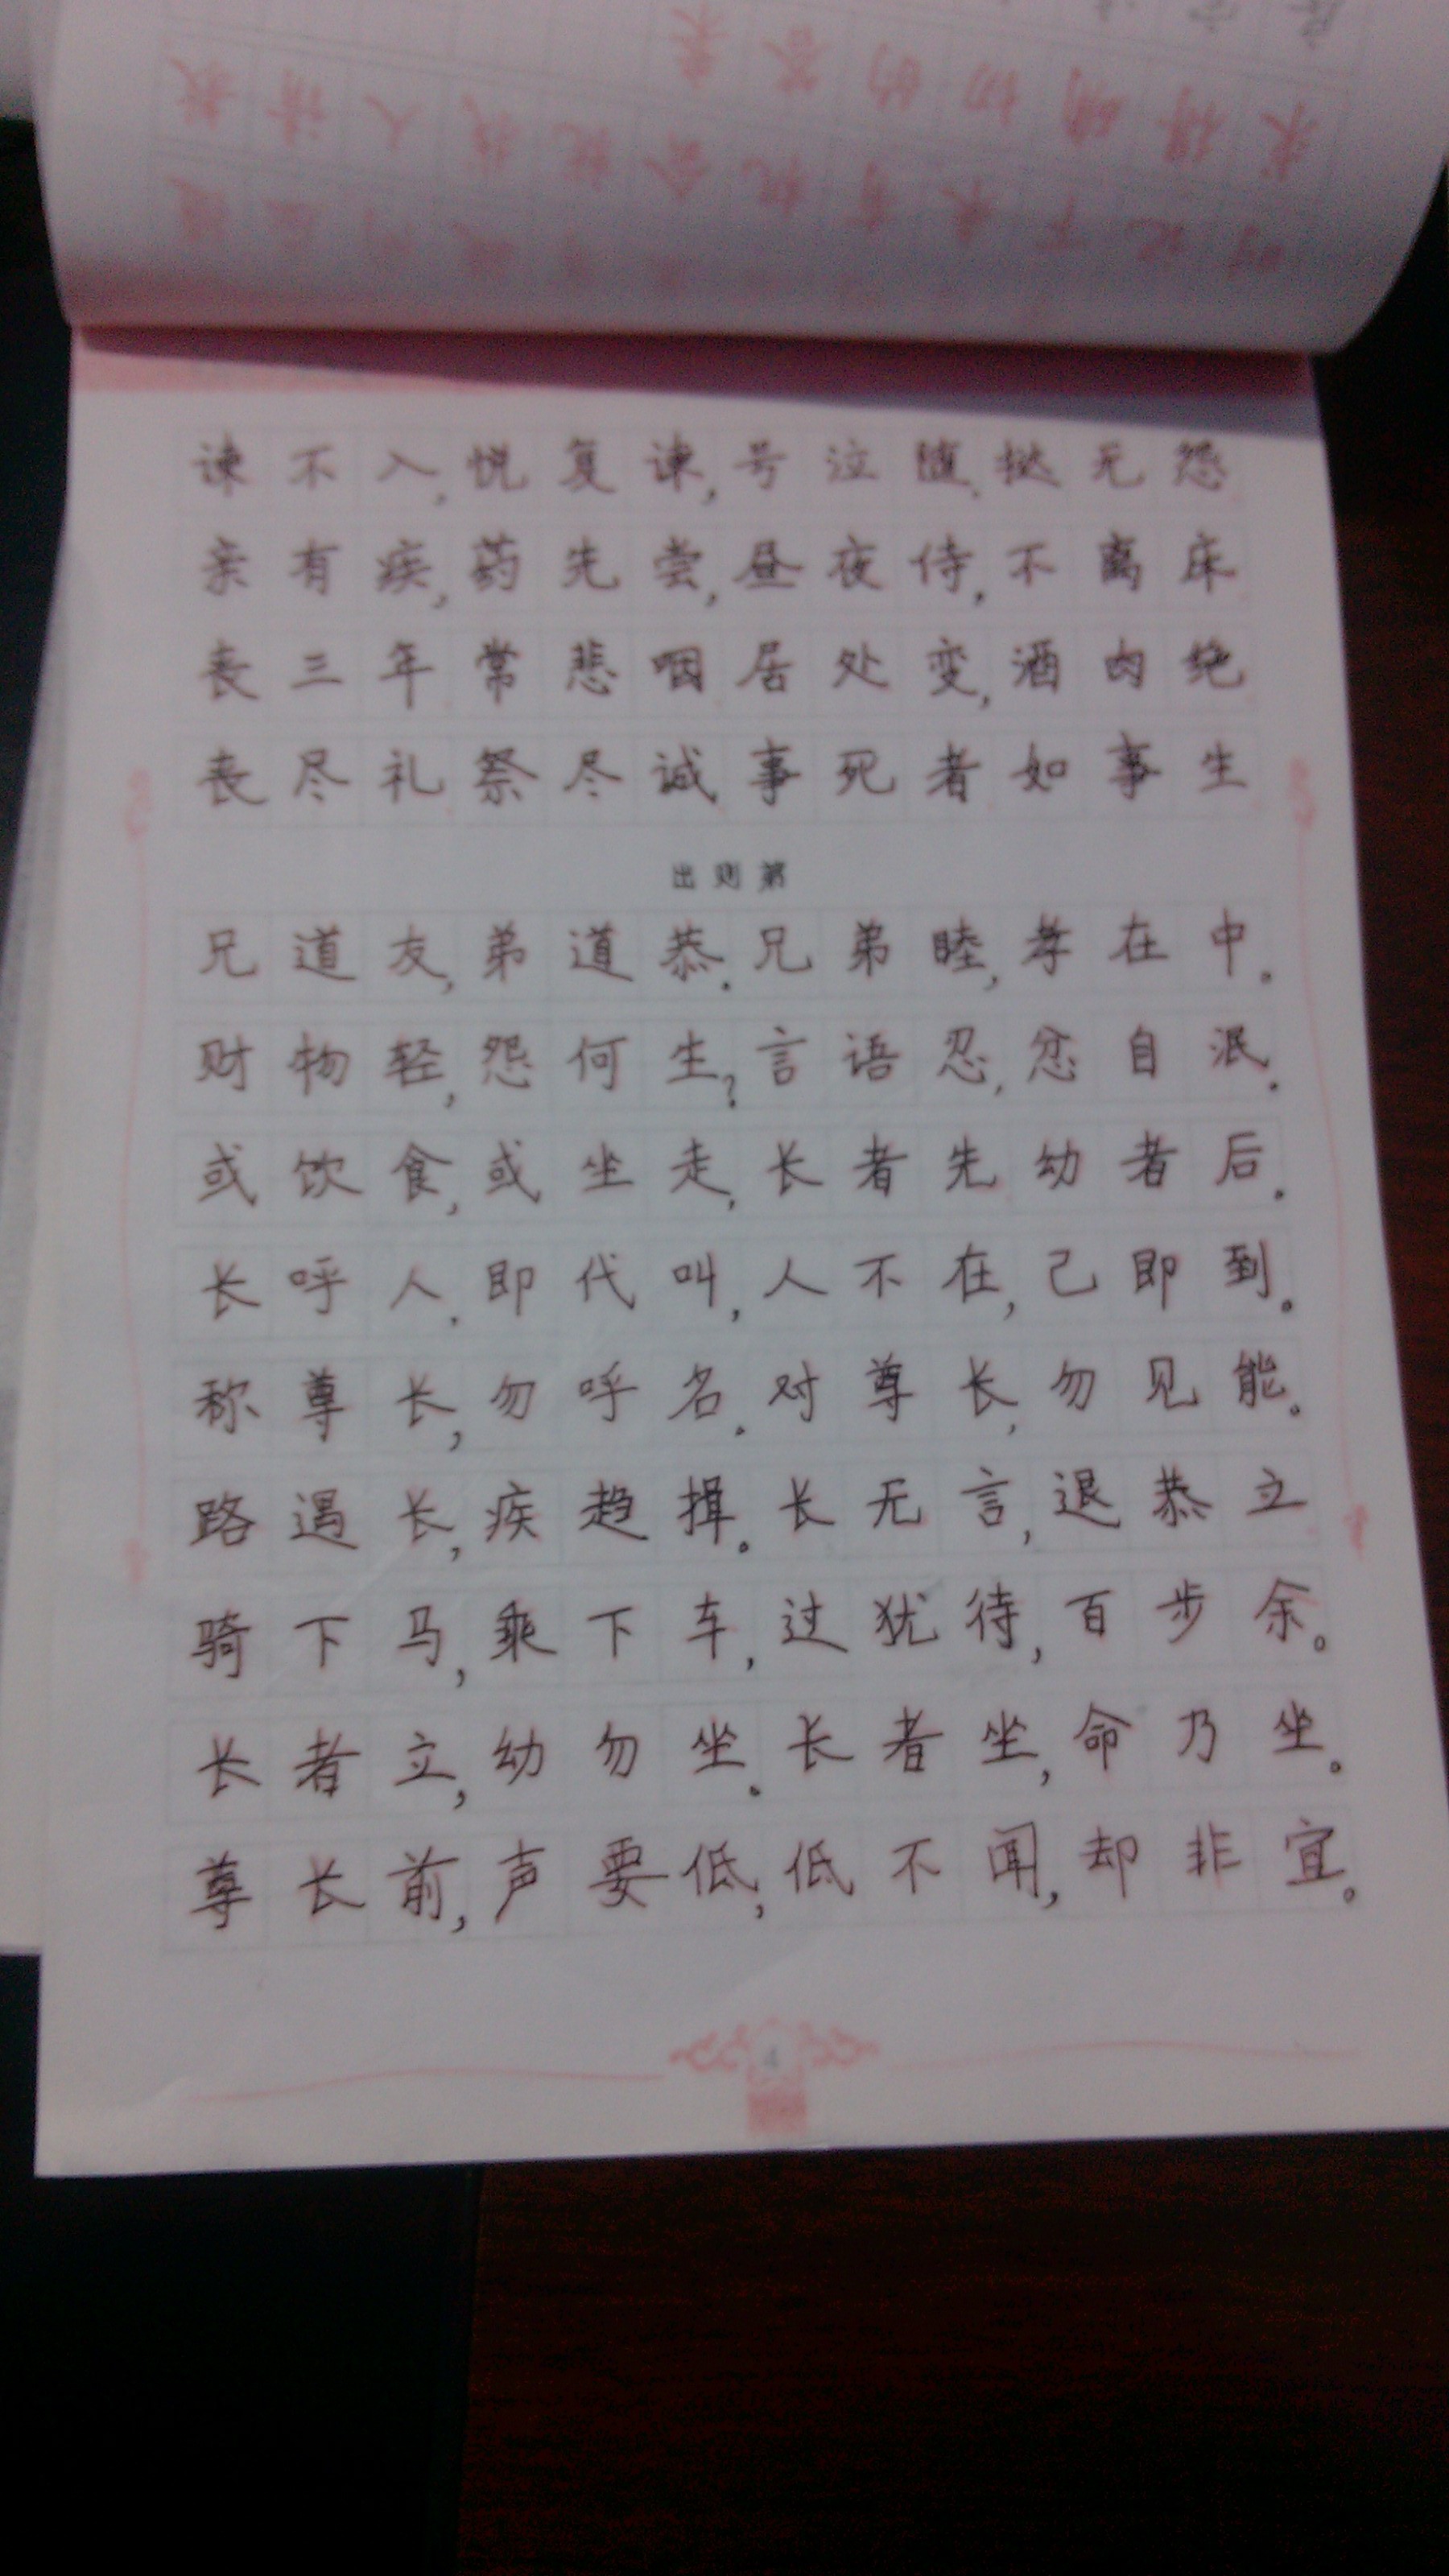 谏不入,悦复谏,号泣随,挞无怨
亲有疾,药先尝,昼夜侍,不离床
丧三年常悲咽居处变,酒肉绝
丧尽礼祭尽诚事死者如事生
出则弟
兄道友,弟道恭。兄弟睦,孝在中。
财物轻,怨何生?言语忍,忿自泯.
或饮食,或坐走,长者先幼者后.
长呼人.即代叫,人不在,己即到。
称尊长,勿呼名。对尊长,勿见能。
路遇长,疾趋揖。长无言,退恭立
骑下马,乘下车,过犹待,百步余。
长者立,幼勿坐。长者坐,命乃坐。
尊长前,声要低,低不闻,却非宜。
4